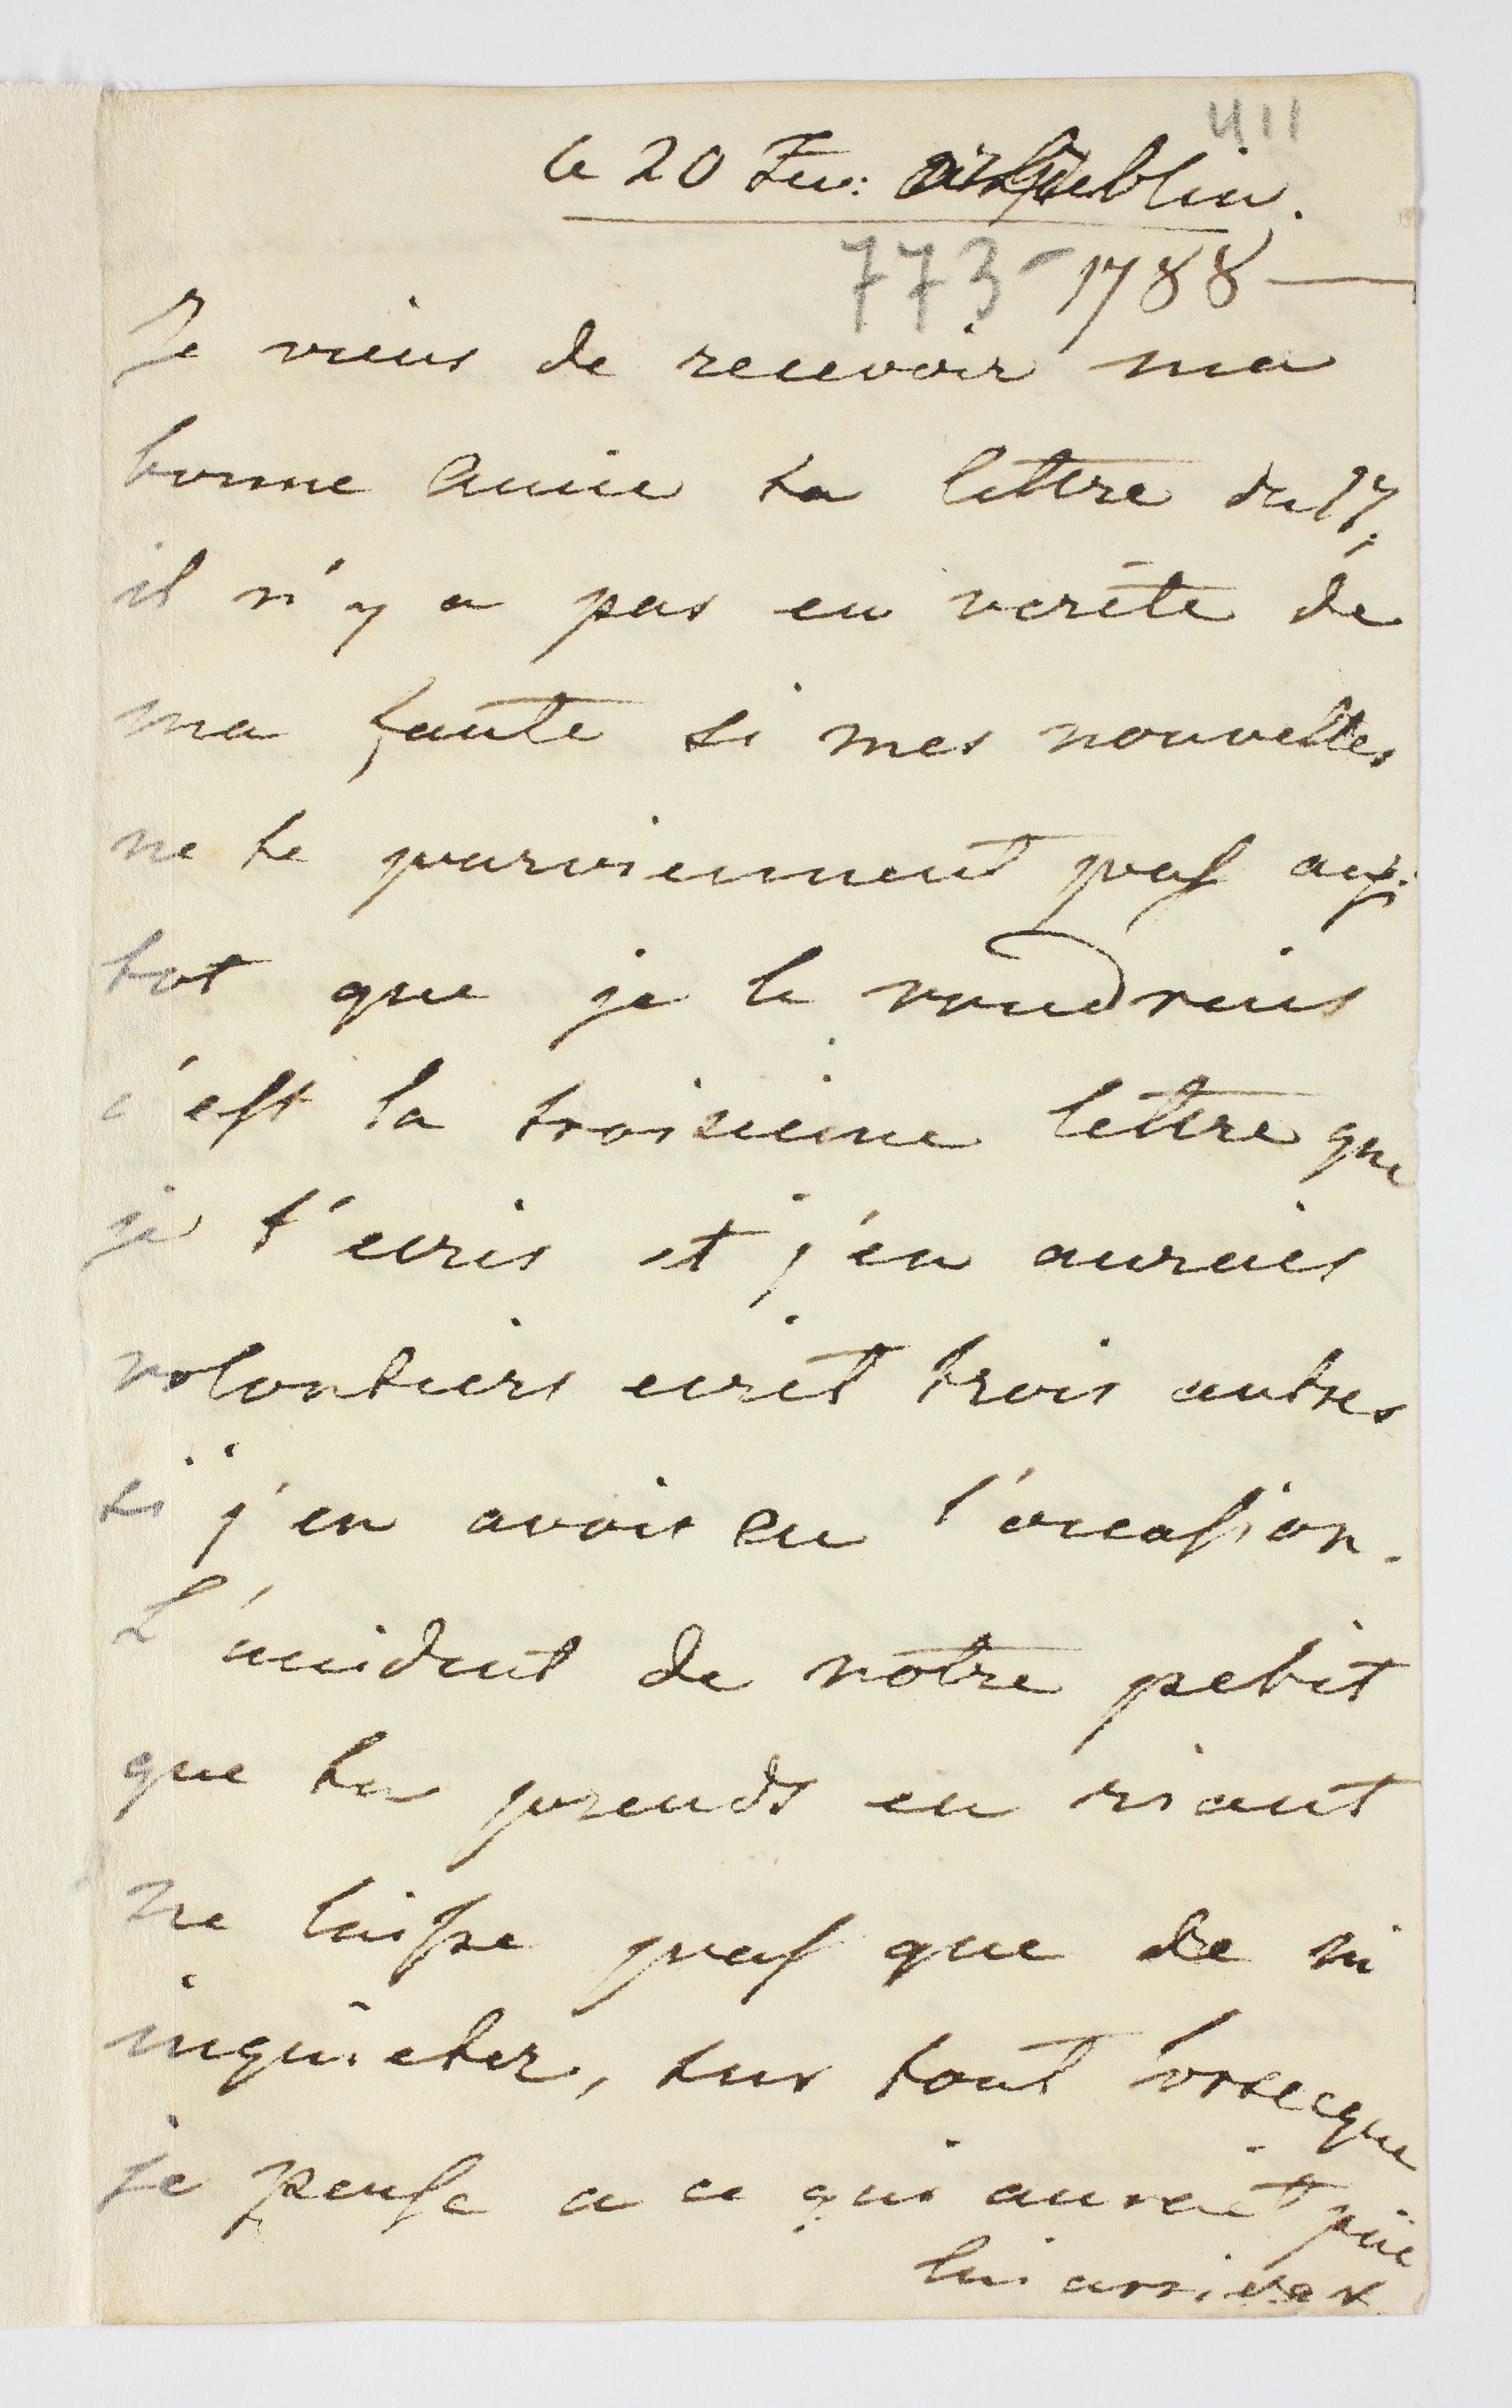 411
le 20 Fev: Lublin.
773 - 1788
Je viens de recevoir ma
bonne Amie ta lettre du 17,
il n'y a pas en verité de
ma faute si mes nouvelles
ne te parviennent pas aussi
tot que je le voudrais
c'est la troisieme lettre que
je t'ecris et j'en aurais
volontiers ecrit trois autres
si j'en avois eu l'occasion.
L'accident de notre petit
que tu prends en riant
ne laisse pas que de m'
inquieter, sur tout lorsque
je pense a ce qui auroit pue
lui arriver